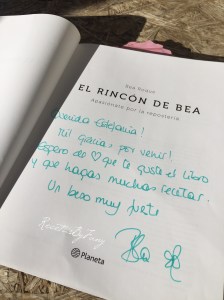 Bea Roque
EL RINCÓN DE BEA
Apasionada por la repostería
Querida Estefanía!
Mil gracias por venir!
Espero de ♡ que te guste el libro
y que hagas muchas recetas.
Un beso muy fuerte
Bea
Planeta